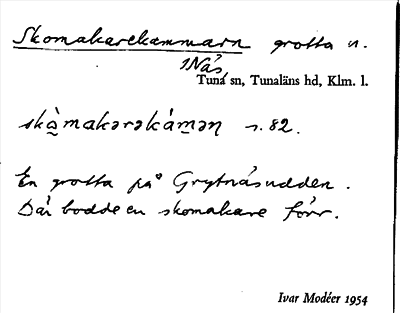 Skomakarekammarn grotta n.
i Näs
Tuna sn, Tunaläns hd, Klm. l.
skà̱makərəkám̱əņ s. 82.
En grotta på Grytnäsudden.
Där bodde en skomakare förr.
Ivar Modéer 1954